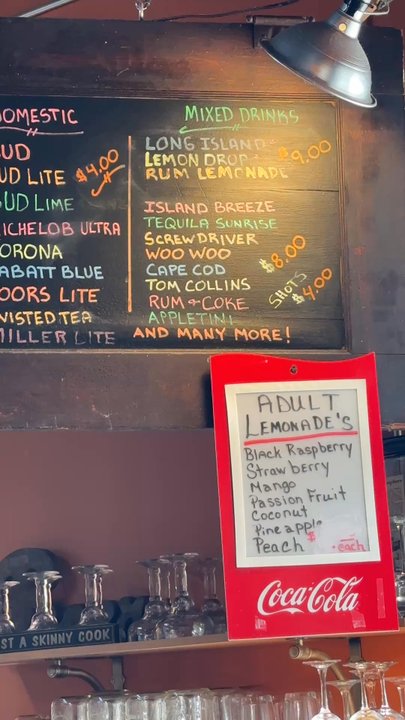 DOMESTIC
UD
UD LITE $4.00
UD LIME
ICHELOB ULTRA
ORONA
ABATT BLUE
OORS LITE
WISTED TEA
MILLER LITE
MIXED DRINKS
LONG ISLAND
LEMON DROP $9.00
RUM LEMONADE
ISLAND BREEZE
TEQUILA SUNRISE
SCREWDRIVER
WOO WOO $8.00
CAPE COD
TOM COLLINS
RUM & COKE
APPLETINI
SHOTS
$4.00
AND MANY MORE!
ADULT
LEMONADE'S
Black Raspberry
Strawberry
Mango
Passion Fruit
Coconut
Pineapple
Peach $ each
Coca-Cola
ST A SKINNY COOK